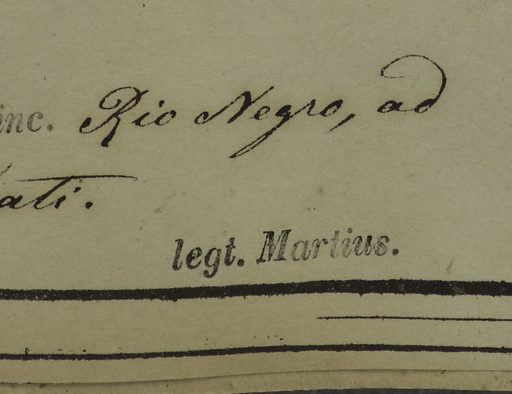 inc. Rio Negro, ad
ati.
legt. Martius.